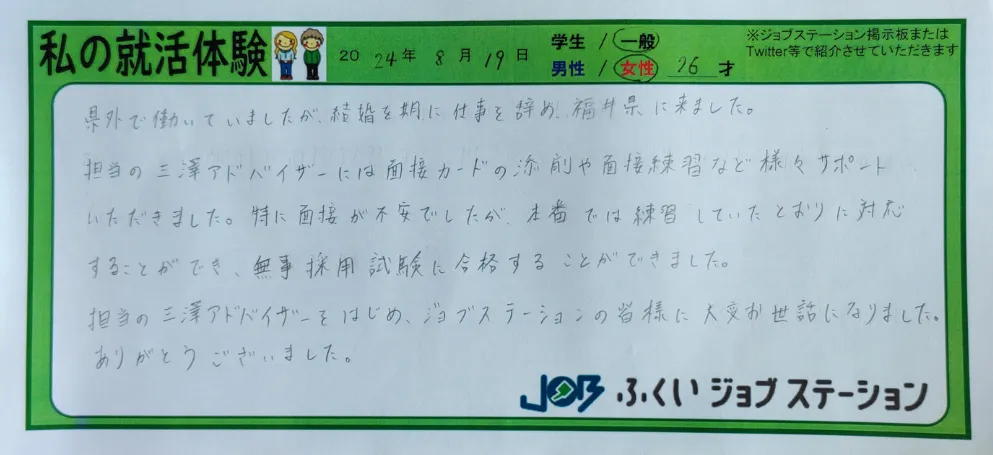 私の就活体験
2024年 8月19日
学生 / 一般
男性 / 女性 26才
※ジョブステーション掲示板または
Twitter等で紹介させていただきます
県外で働いていましたが、結婚を期に仕事を辞め、福井県に来ました。
担当の三澤アドバイザーには面接カードの添削や面接練習など様々サポート
いただきました。特に面接が不安でしたが、本番では練習していたとおりに対応
することができ、無事採用試験に合格することができました。
担当の三澤アドバイザーをはじめ、ジョブステーションの皆様に大変お世話になりました。
ありがとうございました。
JOB ふくいジョブステーション